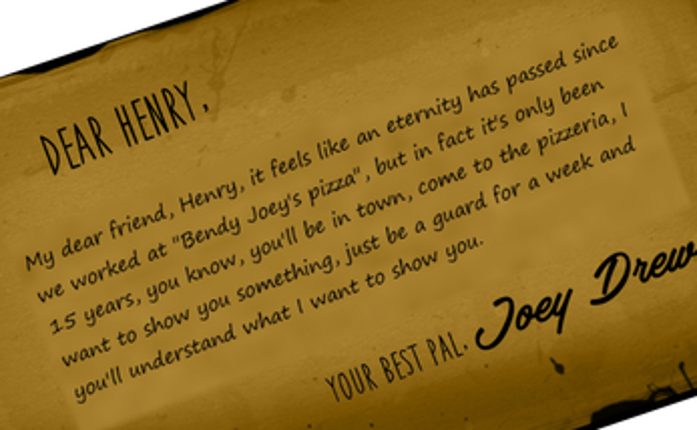 DEAR HENRY,
My dear friend, Henry, it feels like an eternity has passed since
we worked at "Bendy Joey's pizza", but in fact it's only been
15 years, you know, you'll be in town, come to the pizzeria, I
want to show you something, just be a guard for a week and
you'll understand what I want to show you.
YOUR BEST PAL. Joey Drew